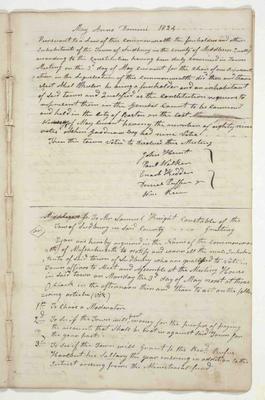 May Anno Domini 1824
Pursuant to a Law of this commonwealth the freeholders and other
inhabitants of the Town of Sudbury in the county of Middlesex
according to the Constitution having been duly convened in Town
Meeting on the 3d day of May current for the choice of
in the legislature of this commonwealth did then and there
elect he being a freeholder and an inhabitant
of said town and Qualified as the Constitution requires to
represent them in the General Court to be convened
and held in the city of Boston on the last
Wednesday of May Instant having the number of eighty nine
votes had nine Votes
Then this town voted to dissolve this Meeting
John Hunt
Paul Walker
Enoch Kidder
&
Wm
To Mr Samuel Knight Constable of the
Town of Sudbury in said County Greeting
You are hereby required in the Name of the Commonwealth
of Massachusetts to notify and warn all the male inhabitants
of said town of Sudbury who are qualified to vote in
Town affairs to Meet and assemble at the Meeting House
in said town on Monday the 3d day of May next at three
O clock in the afternoon then and there to act on the following
articles (viz)
1st To Chose a Moderator
2nd To see if the Town will for the purpose of paying
the accounts that Shall be against said Town for
3rd To see if the Town will grant to the Revd Rufus
Hurlbut his Sallary the year ensuing in addition to the
Interest arising from the Ministerial fund